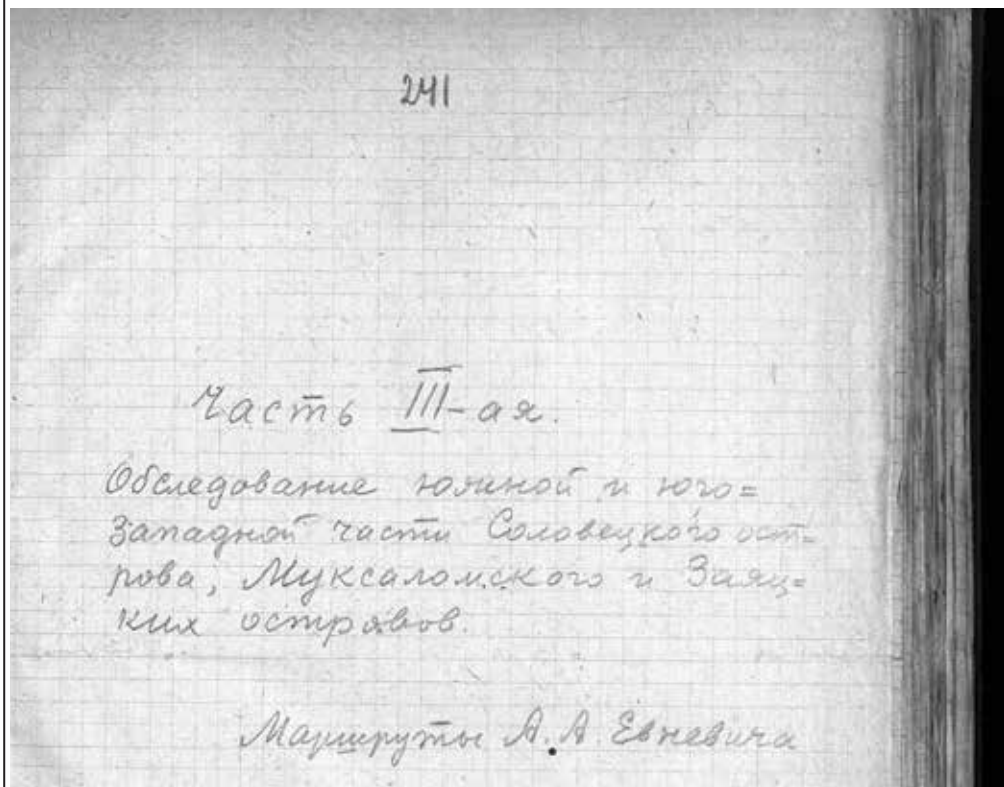 241
Часть III-ая.
Обследование южной и юго=
западной части Соловецкого ост-
рова, Муксаломского и Заяц=
ких островов.
Маршруты А.А. Евневича